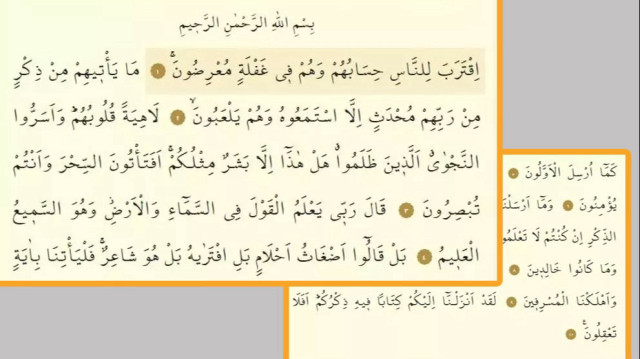 بِسْمِ اللهِ الرَّحْمٰنِ الرَّحٖيمِ
اِقْتَرَبَ لِلنَّاسِ حِسَابُهُمْ وَهُمْ فٖي غَفْلَةٍ مُعْرِضُونَۚ ﴿١﴾ مَا يَأْتٖيهِمْ مِنْ ذِكْرٍ
مِنْ رَبِّهِمْ مُحْدَثٍ اِلَّا اسْتَمَعُوهُ وَهُمْ يَلْعَبُونَۙ ﴿٢﴾ لَاهِيَةً قُلُوبُهُمْۜ وَاَسَرُّوا
النَّجْوٰىۗ اَلَّذٖينَ ظَلَمُواۗ هَلْ هٰذَٓا اِلَّا بَشَرٌ مِثْلُكُمْۚ اَفَتَأْتُونَ السِّحْرَ وَاَنْتُمْ
تُبْصِرُونَ ﴿٣﴾ قَالَ رَبّٖي يَعْلَمُ الْقَوْلَ فِي السَّمَٓاءِ وَالْاَرْضِۘ وَهُوَ السَّمٖيعُ
الْعَلٖيمُ ﴿٤﴾ بَلْ قَالُٓوا اَضْغَاثُ اَحْلَامٍ بَلِ افْتَرٰيهُ بَلْ هُوَ شَاعِرٌۚ فَلْيَأْتِنَا بِاٰيَةٍ
كَمَٓا اُرْسِلَ الْاَوَّلُونَ
يُؤْمِنُونَ ﴿٦﴾ وَمَٓا اَرْسَلْنَا
الذِّكْرِ اِنْ كُنْتُمْ لَا تَعْلَمُونَ
وَمَا كَانُوا خَالِدٖينَ
وَاَهْلَكْنَا الْمُسْرِفٖينَ ﴿٩﴾ لَقَدْ اَنْزَلْنَٓا اِلَيْكُمْ كِتَابًا فٖيهِ ذِكْرُكُمْۜ اَفَلَا
تَعْقِلُونَۚ ﴿١٠﴾